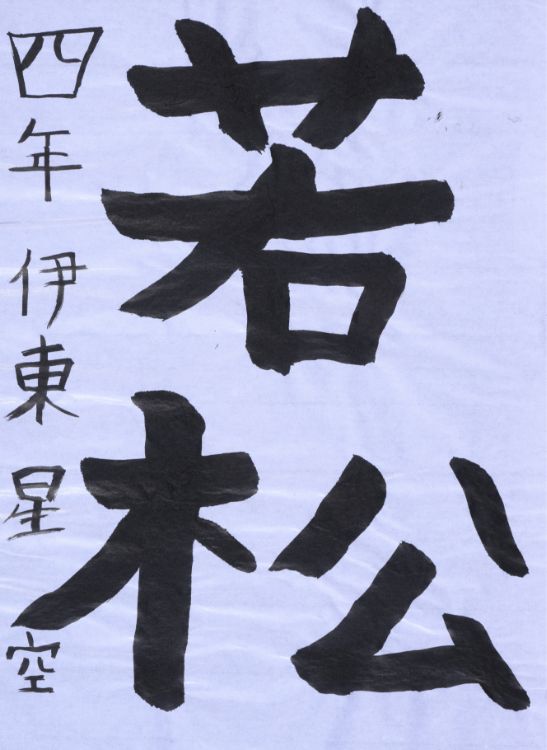 若松
四年 伊東 星空